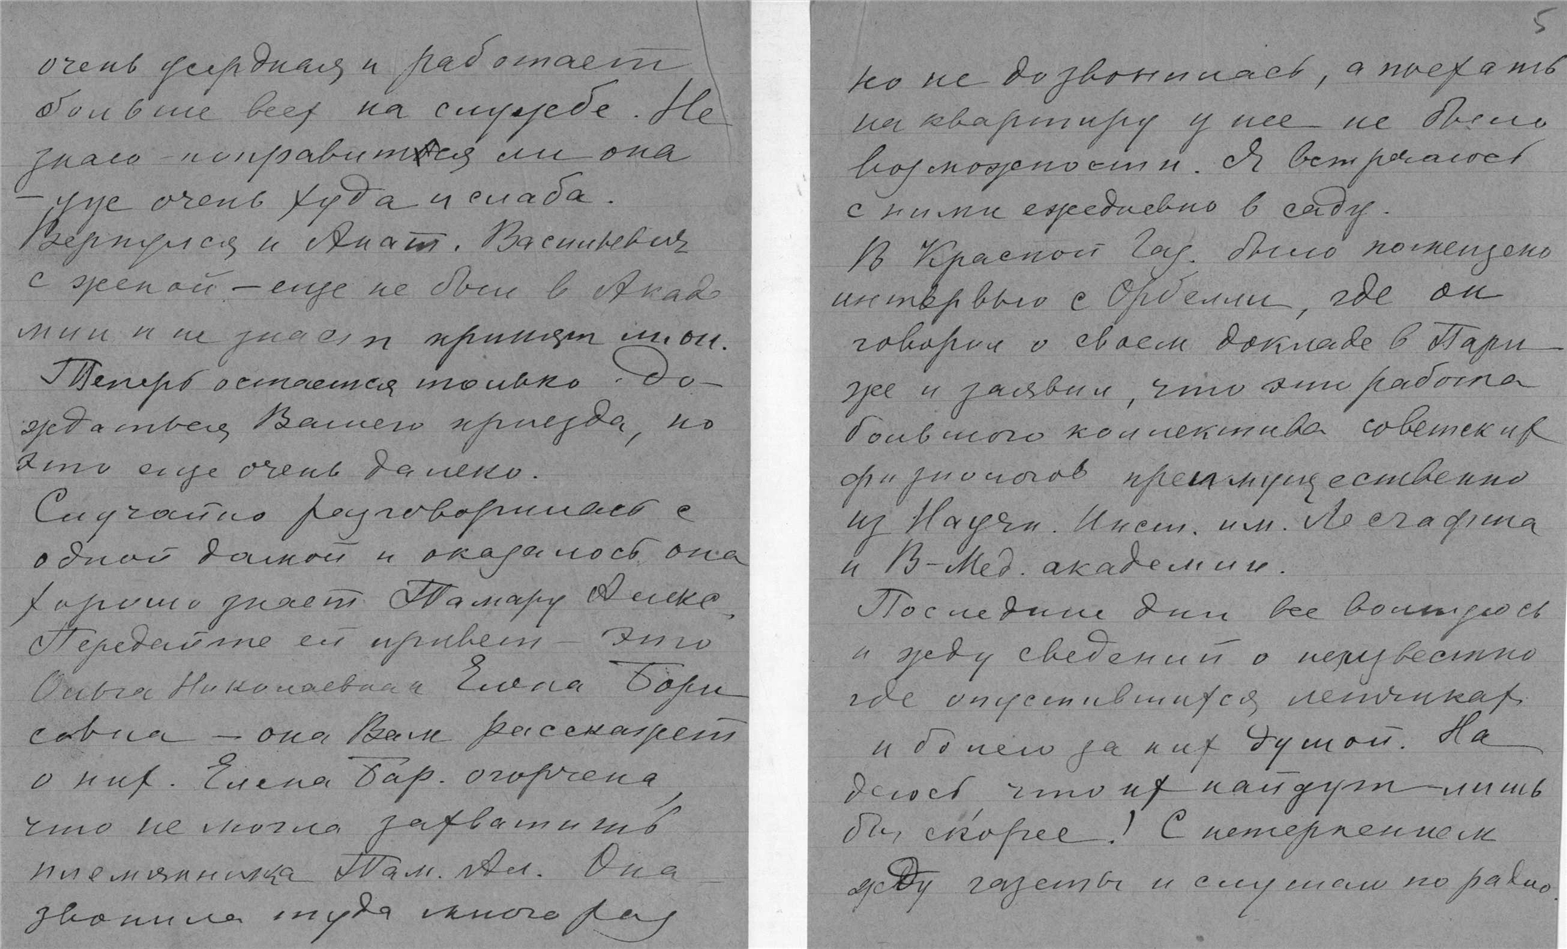 очень усердная и работает
больше всех на службе. Не
знаю – поправится ли она
– уж очень худа и слаба.
Вернулся и Анат. Васильевич
с женой – еще не был в Акаде
мии и не знает принят ли он.
Теперь остается только до-
ждаться Вашего приезда, но
это еще очень далеко.
Случайно разговорилась с
одной дамой и оказалось она
хорошо знает Тамару Алекс.
Передайте ей привет – это
Ольга Николаевна и Елена Бори
совна – она Вам расскажет
о них. Елена Бор. огорчена,
что не могла захватить
племянника Там. Ал. Она
звонила туда много раз
5
но не дозвонилась, а поехать
на квартиру у нее не было
возможности. Я встречаюсь
с ними ежедневно в саду.
В Красной Газ. было помещено
интервью с Орбелли, где он
говорил о своем докладе в Пари-
же и заявил, что эти работа
большого коллектива советских
физиологов преимущественно
из Научн. Инст. им. Лесгафта
и В-Мед. академии.
Последние дни все волнуюсь
и жду сведений о неизвестно
где опустившихся летчиках
и болею за них душой. На
деюсь, что их найдут – лишь
бы скорее! С нетерпением
жду газеты и слушаю по радио.